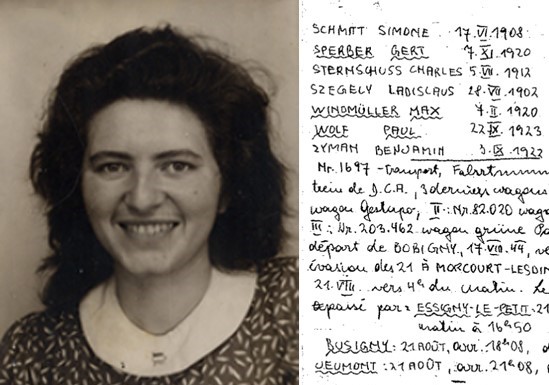 SCHMITT SIMONE 17.VI.1908
SPERBER GERT 7.XI.1920
STERNSCHUSS CHARLES 5.VII.1912
SZEGELY LADISLAUS 28.VII.1902
WINDMÜLLER MAX 7.II.1920
WOLF PAUL 22.IX.1923
ZYMAN BENJAMIN 3.IX.1922
Nr. 1697 - Transport,
train de D.C.A., 3 derniers wagons
wagon Gestapo, II: Nr. 82.020
III: Nr. 203.462 wagon
départ de BOBIGNY, 17.VIII.44,
évasion des 21 À MORCOURT-LESDIN
21.VIII vers 4h du matin. Le
dépassé par: ESSIGNY-LE-PETIT 21
matin à 16h50
BUSIGNY: 21 AOÛT, arr. 18h08,
JEUMONT: 21 AOÛT, arr. 21h08,